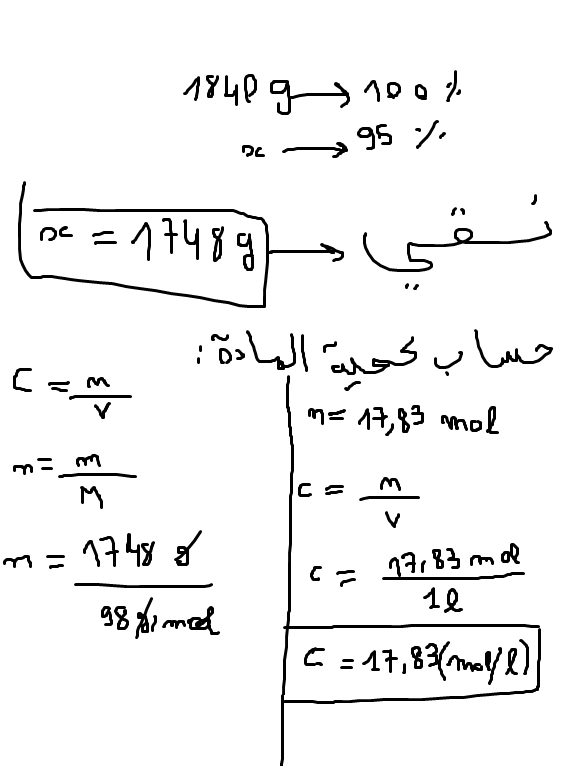 1840 g → 100 %
x → 95 %
x = 1748 g → نقي
حساب كمية المادة :
C = n/V
n = m/M
n = 1748 g / 98 g/mol
n = 17,83 mol
c = n/V
c = 17,83 mol / 1l
C = 17,83 (mol/l)